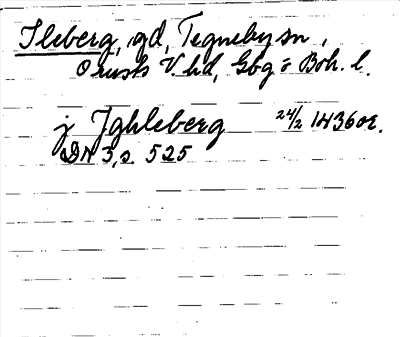 Ileberg, gd, Tegneby sn,
Orusts V. hd, Gbg o Boh. l.
j Jghleberg 24/2 1436 or.
DN 3, s. 525